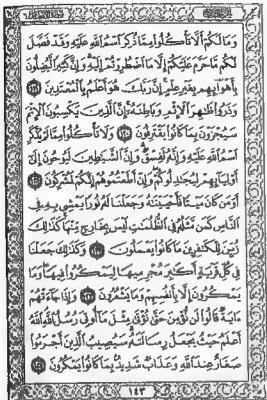 وَمَا لَكُمْ أَلَّا تَأْكُلُوا۟ مِمَّا ذُكِرَ ٱسْمُ ٱللَّهِ عَلَيْهِ وَقَدْ فَصَّلَ
لَكُم مَّا حَرَّمَ عَلَيْكُمْ إِلَّا مَا ٱضْطُرِرْتُمْ إِلَيْهِ وَإِنَّ كَثِيرًا لَّيُضِلُّونَ
بِأَهْوَآئِهِم بِغَيْرِ عِلْمٍ إِنَّ رَبَّكَ هُوَ أَعْلَمُ بِٱلْمُعْتَدِينَ ١١٩
وَذَرُوا۟ ظَٰهِرَ ٱلْإِثْمِ وَبَاطِنَهُۥٓ إِنَّ ٱلَّذِينَ يَكْسِبُونَ ٱلْإِثْمَ
سَيُجْزَوْنَ بِمَا كَانُوا۟ يَقْتَرِفُونَ ١٢٠ وَلَا تَأْكُلُوا۟ مِمَّا لَمْ يُذْكَرِ
ٱسْمُ ٱللَّهِ عَلَيْهِ وَإِنَّهُۥ لَفِسْقٌ وَإِنَّ ٱلشَّيَٰطِينَ لَيُوحُونَ إِلَىٰٓ
أَوْلِيَآئِهِمْ لِيُجَٰدِلُوكُمْ وَإِنْ أَطَعْتُمُوهُمْ إِنَّكُمْ لَمُشْرِكُونَ ١٢١
أَوَمَن كَانَ مَيْتًا فَأَحْيَيْنَٰهُ وَجَعَلْنَا لَهُۥ نُورًا يَمْشِى بِهِۦ فِى
ٱلنَّاسِ كَمَن مَّثَلُهُۥ فِى ٱلظُّلُمَٰتِ لَيْسَ بِخَارِجٍ مِّنْهَا كَذَٰلِكَ
زُيِّنَ لِلْكَٰفِرِينَ مَا كَانُوا۟ يَعْمَلُونَ ١٢٢ وَكَذَٰلِكَ جَعَلْنَا
فِى كُلِّ قَرْيَةٍ أَكَٰبِرَ مُجْرِمِيهَا لِيَمْكُرُوا۟ فِيهَا وَمَا
يَمْكُرُونَ إِلَّا بِأَنفُسِهِمْ وَمَا يَشْعُرُونَ ١٢٣ وَإِذَا جَآءَتْهُمْ
ءَايَةٌ قَالُوا۟ لَن نُّؤْمِنَ حَتَّىٰ نُؤْتَىٰ مِثْلَ مَآ أُوتِىَ رُسُلُ ٱللَّهِ ٱللَّهُ
أَعْلَمُ حَيْثُ يَجْعَلُ رِسَالَتَهُۥ سَيُصِيبُ ٱلَّذِينَ أَجْرَمُوا۟
صَغَارٌ عِندَ ٱللَّهِ وَعَذَابٌ شَدِيدٌۢ بِمَا كَانُوا۟ يَمْكُرُونَ ١٢٤
١٤٣